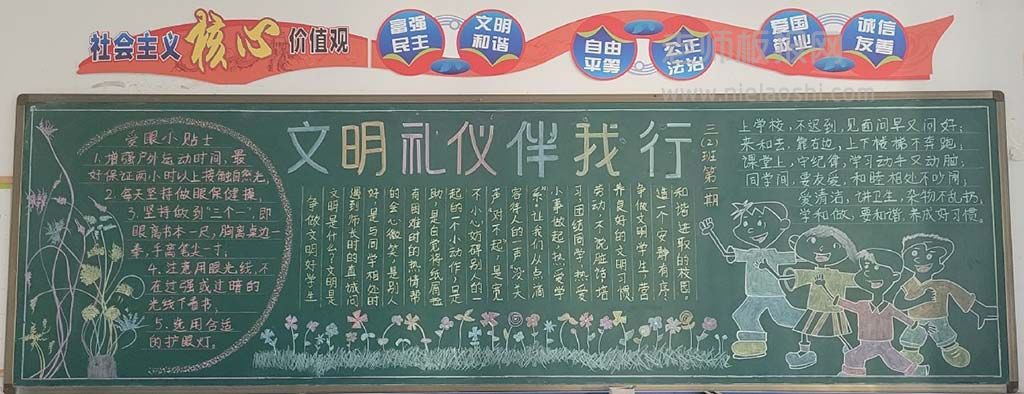 社会主义核心价值观
富强
民主
文明
和谐
自由
平等
公正
法治
爱国
敬业
诚信
友善
爱眼小贴士
1.增强户外运动时间,最
好保证两小时以上接触自然光。
2.每天坚持做眼保健操。
3.坚持做到“三个一”,即
眼离书本一尺,胸离桌边一
拳,手离笔尖一寸。
4.注意用眼光线,不
在过强或过暗的
光线下看书。
5.选用合适
的护眼灯。
文明礼仪伴我行
三(2)班第一期
争做文明好学生
文明是什么?文明是
遇到师长时的真诚问
好,是与同学相处时
的会心微笑,是别人
有困难时的热情帮
助,是自觉将纸屑捡
起的一个小动作,是
不小心妨碍别人的一
声“对不起”,是宽
容待人的一声“没关
系”。让我们从点滴
小事做起,热爱学
习,团结同学,热爱
劳动,不说脏话,培
养良好的文明习惯
争做文明学生,营
造一个安静有序、
和谐进取的校园。
上学校,不迟到,见面问早又问好;
来和去,靠右边,上下楼梯不奔跑;
课堂上,守纪律,学习动手又动脑;
同学间,要友爱,和睦相处不吵闹;
爱清洁,讲卫生,杂物不乱扔;
学和做,要和谐,养成好习惯。